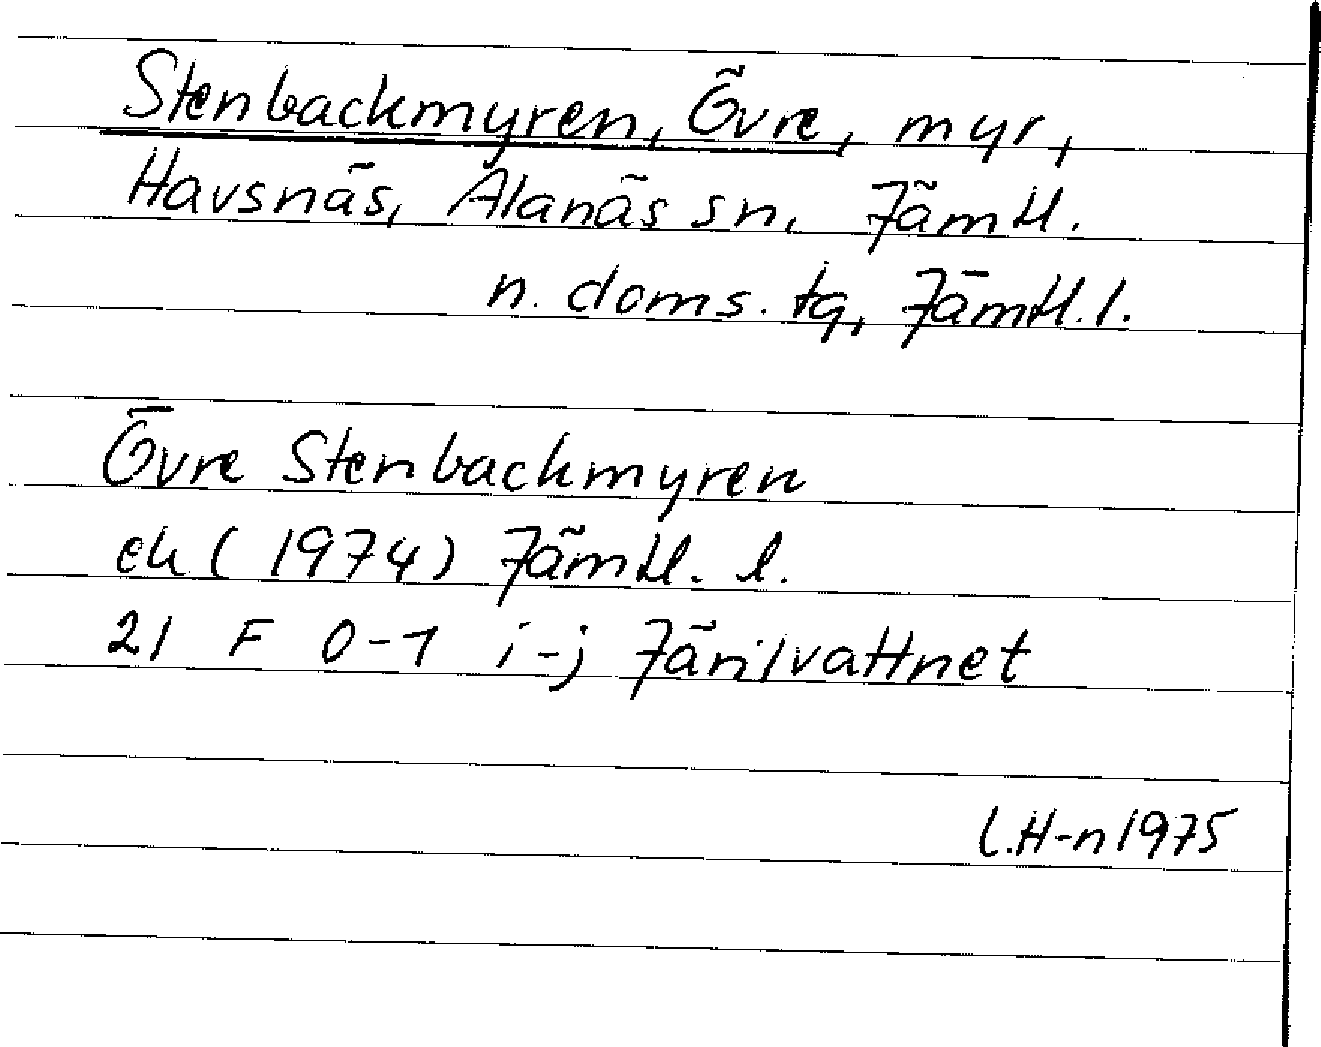 Stenbackmyren, Övre, myr,
Havsnäs, Alanäs sn, Jämtl.
n. doms. tg, Jämtl. l.
Övre Stenbackmyren
ek (1974) Jämtl. l.
21 F 0-1 i-j Järilvattnet
L.H-n 1975